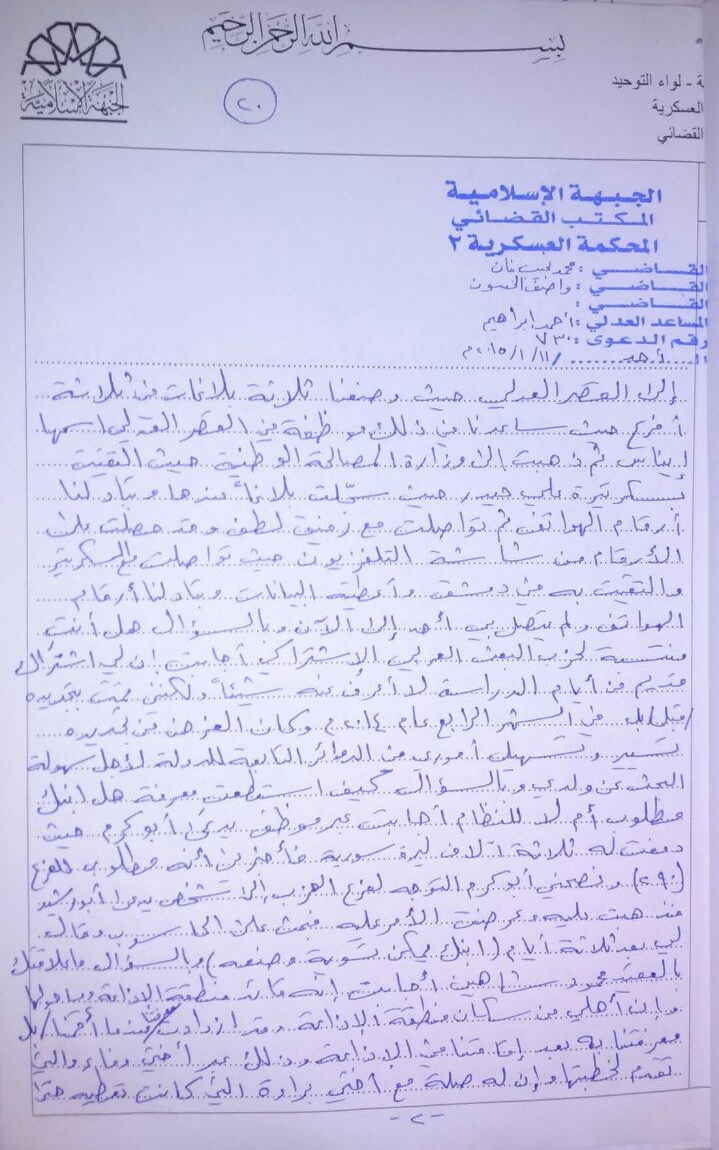 بسم الله الرحمن الرحيم
الجبهة الإسلامية
ة - لواء التوحيد
العسكرية
القضائي
٢٠
الجبهة الإسلامية
المكتب القضائي
المحكمة العسكرية ٢
القاضي : محمد نجيب بنان
القاضي : واصف الحسون
القاضي :
المساعد العدلي : أحمد إبراهيم
رقم الدعوى : ٧٣٠
الأحد ١١/١/٢٠١٥م
إلى القصر العدلي حيث وضعنا ثلاثة بلاغات في ثلاثة
أفرع حيث ساعدنا في ذلك موظفة في القصر العدلي اسمها
إيناس ثم ذهبت إلى وزارة المصالحة الوطنية حيث التقيت
بسكرتيرة علي حيدر حيث سجلت بلاغاً عندها وتبادلنا
أرقام الهواتف ثم تواصلت مع رفيق لطف وقد حصلت على
الأرقام من شاشة التلفزيون حيث تواصلت مع السكرتير
والتقيت به في دمشق وأعطيته البيانات وتبادلنا أرقام
الهواتف ولم يتصل بي أحد إلى الآن وبالسؤال هل أنت
منتسبة لحزب البعث العربي الاشتراكي أجابت إن لي اشتراك
قديم من أيام الدراسة لا أعرف عنه شيئاً ولكنني قمت بتجديده
/قبل/ بل في الشهر الرابع عام ٢٠١٤م وكان الغرض من تجديده
تسيير وتسهيل أموري من الدوائر التابعة للدولة لأجل سهولة
البحث عن ولدي وبالسؤال كيف استطعت معرفة هل ابنك
مطلوب أم لا للنظام أجابت عبر موظف يدعى أبو كرم حيث
دفعت له ثلاثة آلاف ليرة سورية فأخبرني أنه مطلوب للفرع
(٢٩٠) ونصحني أبو كرم التوجه لفرع الحزب إلى شخص يدعى أبو رشيد
فذهبت عليه وعرضت الأمر عليه فبحث على الحاسوب وقال
لي بعد ثلاثة أيام (ابنك ممكن تسوية وضعه) وبالسؤال ما علاقتك
بالعقيد محمود شاهين أجابت إنه قائد منطقة الإذاعة وما حولها
وإن أهلي من سكان منطقة الإذاعة وقد ازدادت معرفتنا /عندما أقمنا/ بل
معرفتنا به بعد إقامتنا في الإذاعة وذلك عبر أختي وفاء والتي
تقدم لخطبتها وإن له صلة مع أختي برادة التي كانت تعطيه حقنا
- ٢ -